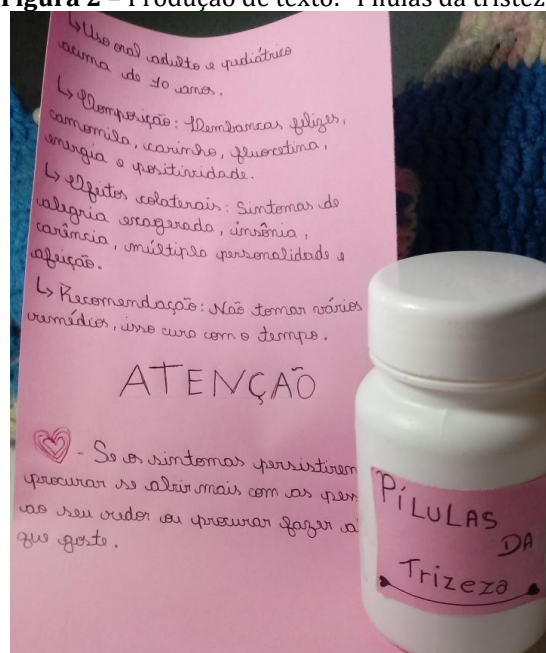 Figura 2 – Produção de texto: "Pílulas da tristez
↳ Uso oral adulto e pediátrico
acima de 10 anos.
↳ Composição: Lembrancas felizes,
camomila, carinho, fluoxetina,
energia e positividade.
↳ Efeitos colaterais: Sintomas de
alegria exagerada, insônia,
carência, múltipla personalidade e
afeição.
↳ Recomendação: Não tomar vários
remédios, isso cura com o tempo.
ATENÇÃO
- Se os sintomas persistirem
procurar se abrir mais com as pes
ao seu redor ou procurar fazer a
que goste.
PíLULAS
DA
Trizeza